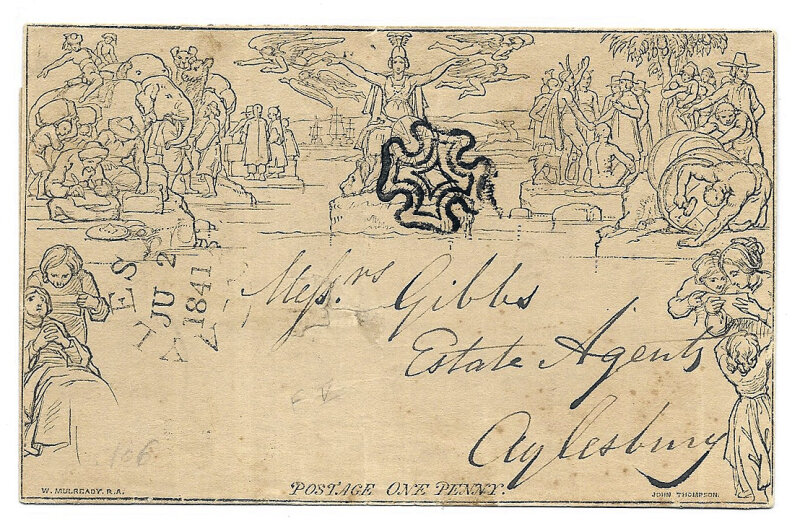 JU 2
1841
Messrs Gibbs
Estate Agents
Aylesbury
106
W. MULREADY. R.A.
POSTAGE ONE PENNY.
JOHN THOMPSON.